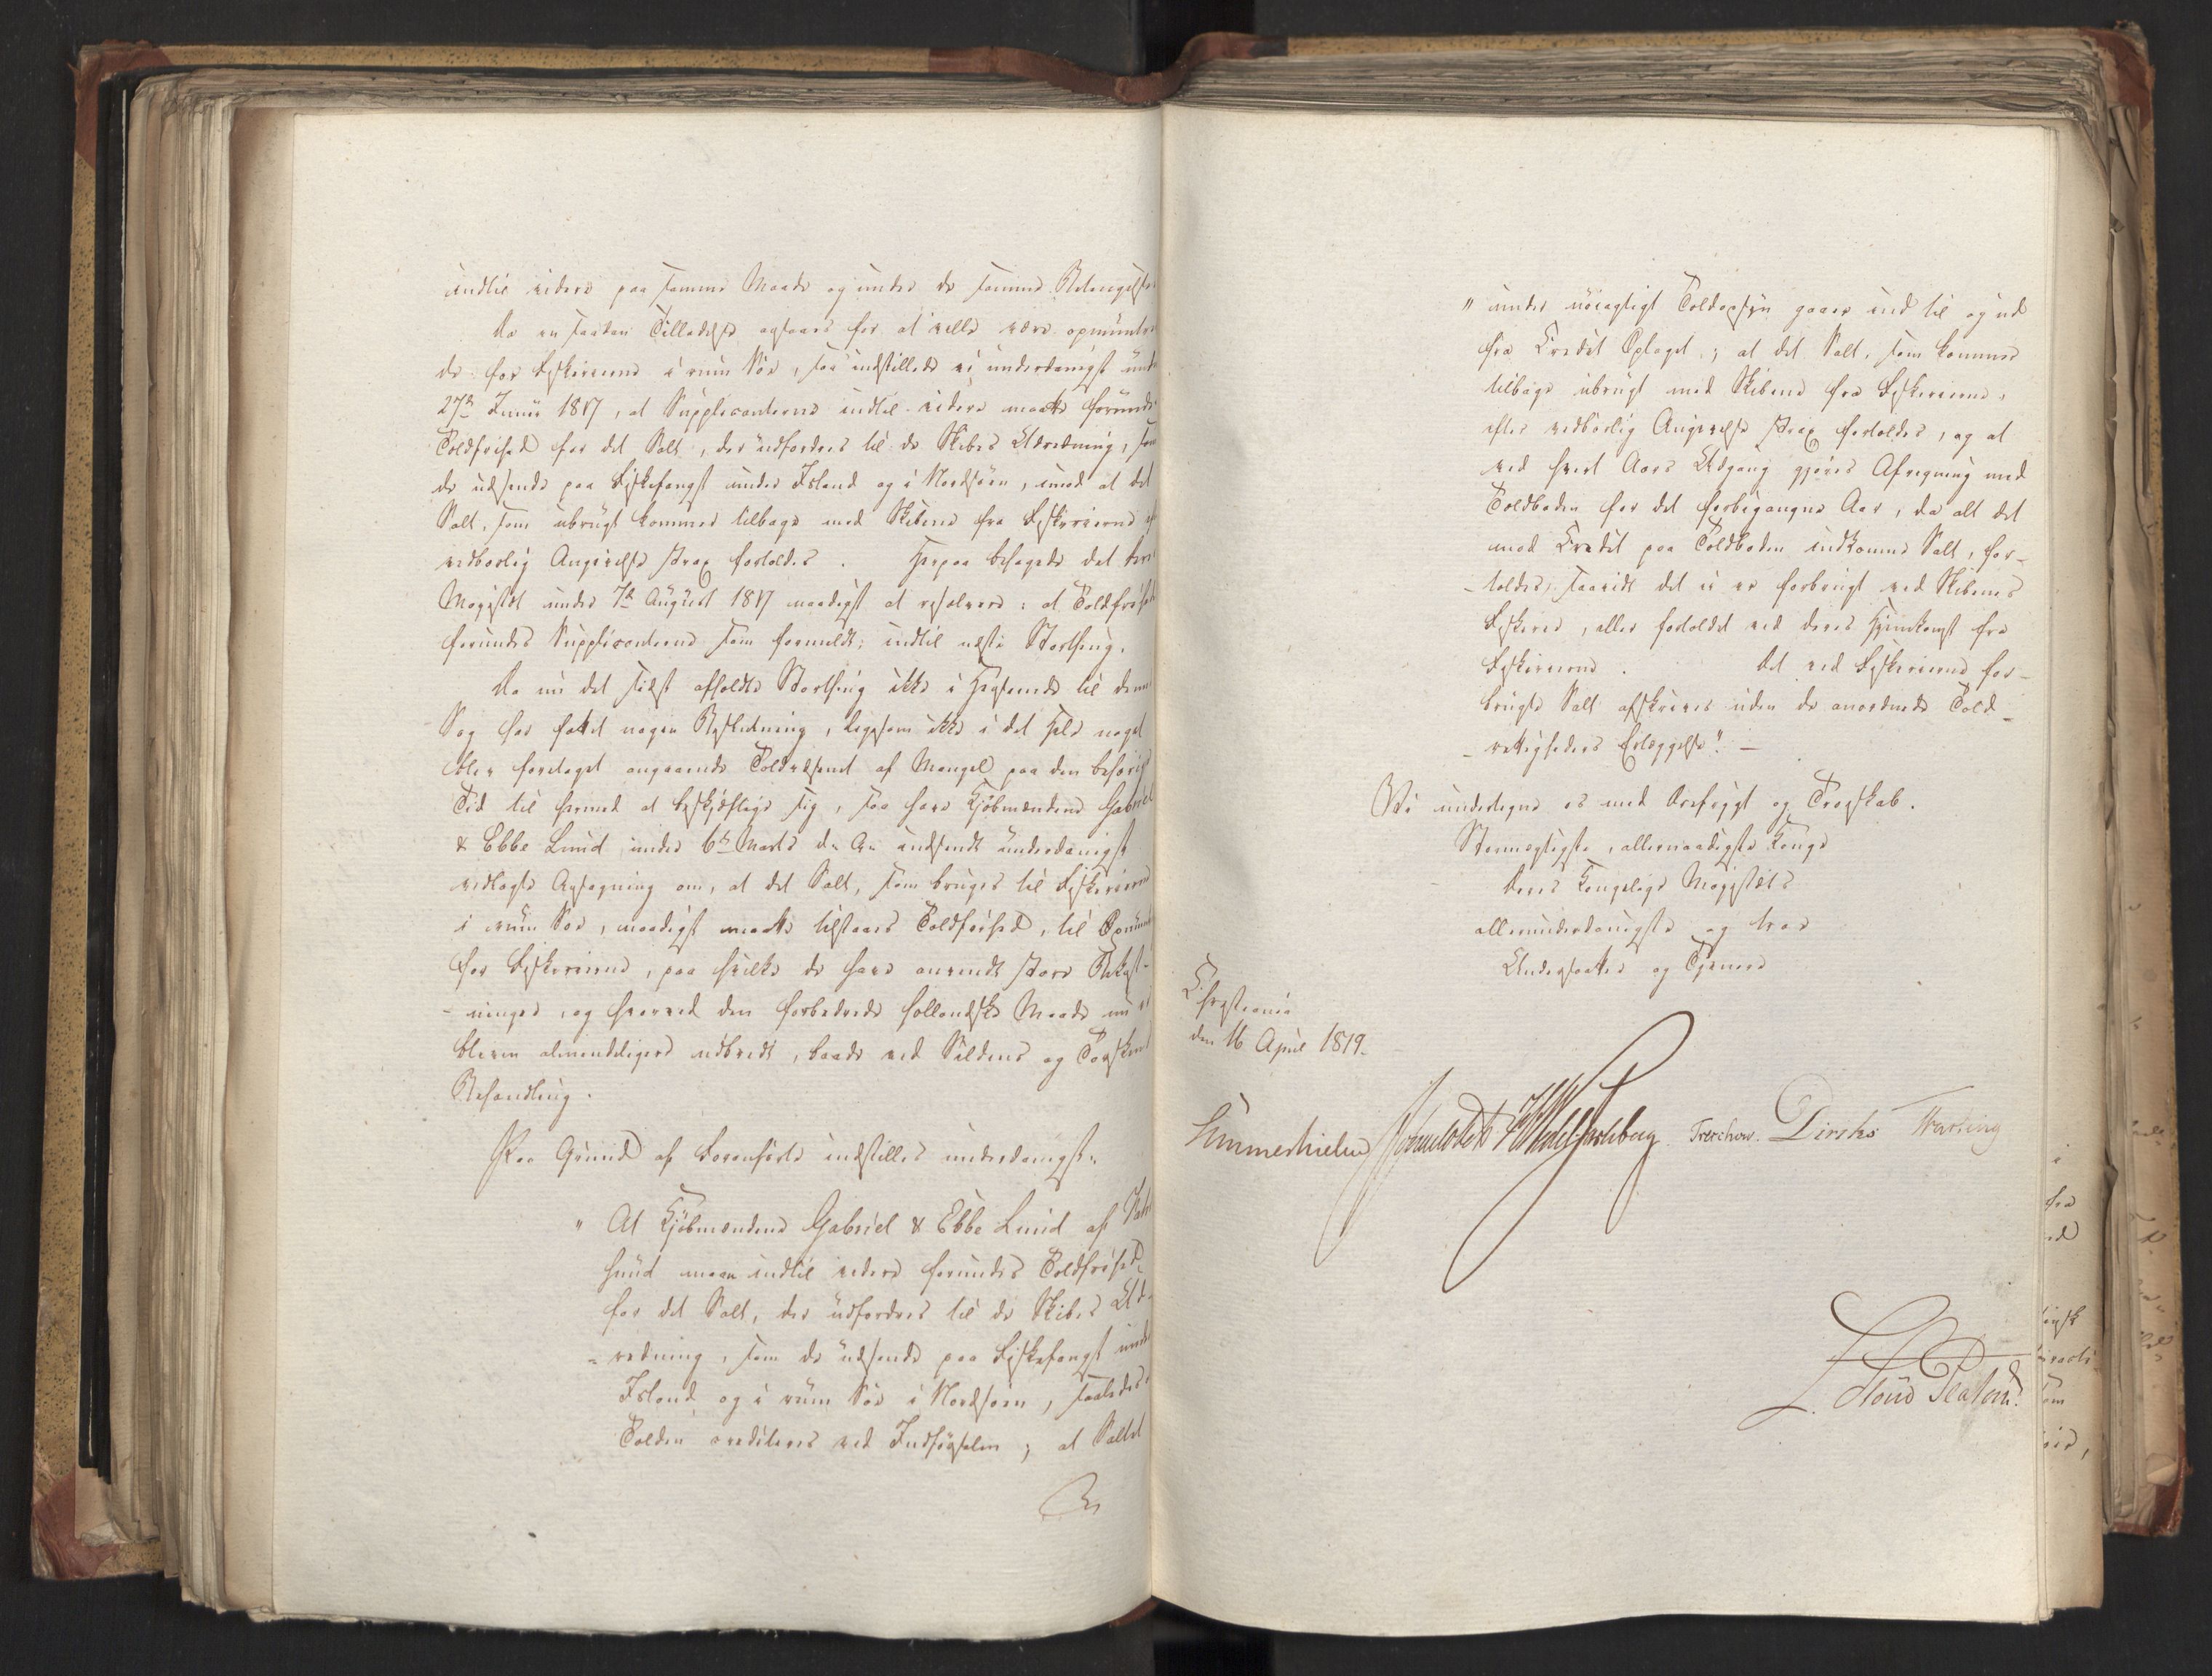 indtil videre paa samme Maade og under de samme Betingelser
Da en saadan Tilladelse ansaaes for at ville være opmuntren
de for Fiskerierne i rum Søe, saa indstillede vi underdanigst under
27de Junii 1817, at Supplicanterne indtil videre maatte forundes
Toldfrihed for det Salt, der udfordres til de Skibes Udredning, som
de udsende paa Fiskefangst under Island og i Nordsøen, imod at det
Salt, som ubrugt kommer tilbage med Skibene fra Fiskerierne
vedborlig Angivelse strax fortoldes. Herpaa behagede det Deres
Majestæt under 7de August 1817 naadigst at resolvere: at Toldfrihed
forundes Supplicanterne som formeldt; indtil næste Storthing.
Da nu det sidst afholdte Storthing ikke i Henseende til denne
Sag har fattet nogen Beslutning, ligesom ikke i det Hele noget
blev foretaget angaaende Toldvæsenet af Mangel paa den behørige
Tid til hermed at beskjæftige sig, saa have Kjøbmændene Gabriel
& Ebbe Lund under 6te Marts d. A. indsendt underdanigst
vedlagte Ansøgning om, at det Salt, som bruges til Fiskerierne
i rum Søe, naadigst maatte tilstaaes Toldfrihed, til Opmuntr
for Fiskerierne, paa hvilke de have anvendt store Bekost-
-ninger, og hvorved den forbedrede hollandske Maade nu er
bleven almindeligere udbredt, baade ved Sildens og Torskens
Behandling.
Paa Grund af Foranførte indstilles underdanigst:
" At Kjøbmændene Gabriel & Ebbe Lund af Fahr
sund maae indtil videre forundes Toldfrihed
for det Salt, der udfordres til de Skibes Ud-
-redning, som de udsende paa Fiskefangst under
Island og i rum Søe i Nordsøen, saaledes:
Tolden crediteres ved Indførselen; at Saltet
" under nøiagtigt Toldopsyn gaaer ind til og ud
fra Credit Oplaget; at det Salt, som kommer
tilbage ubrugt med Skibene fra Fiskerierne,
efter vedbørlig Angivelse strax fortoldes, og at
ved hvert Aars Udgang gjøres Afregning med
Toldboden for det forbigangne Aar, da alt det
mod Credit paa Toldboden indkomne Salt, for-
-toldes, saavidt det ei er forbrugt ved Skibenes
Fiskerie, eller fortoldet ved deres Hjemkomst fra
Fiskerierne. Det ved Fiskerierne for-
brugte Salt afskrives uden de anordnede Told-
-rettigheders Erlæggelse". —
Vi undertegne os med Ærefrygt og Troeskab.
Stormægtigste, allernaadigste Konge
Deres Kongelige Majestæts
allerunderdanigste og troe
Undersaatter og Tjenere
Christiania
den 16 April 1819.
Sommerhielm Wedel Jarlsberg Treschow. Diriks Krag